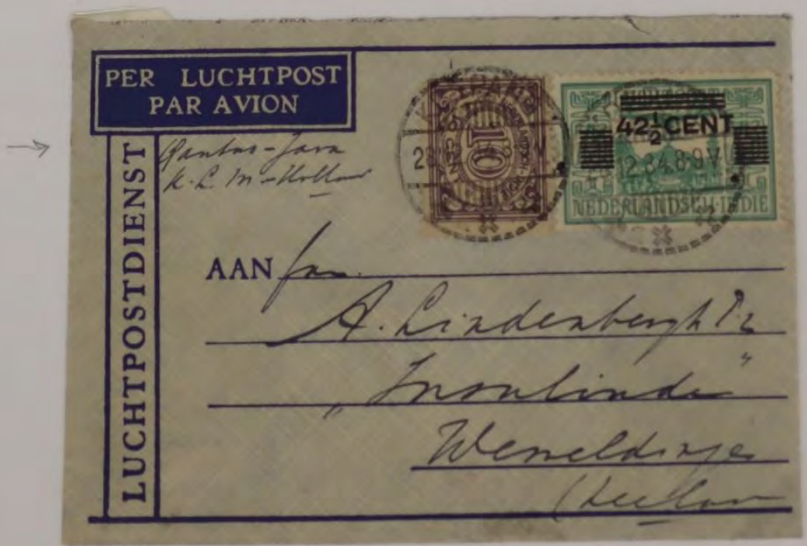 PER LUCHTPOST
PAR AVION
LUCHTPOSTDIENST
Qantas-Java
K.L.M-Holland
10
42½ CENT
12.34.8-9V
NEDERLANDSCH-INDIE
AAN fam.
A. Lindenbergh Pz
"Insulinde"
Wemeldinge